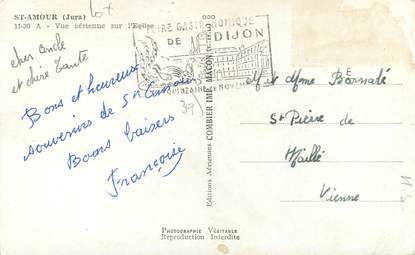 ST-AMOUR (Jura)
11-20 A - Vue aérienne sur l'Eglise
lot
cher oncle
et chère Tante
Bons et heureux
souvenirs de St Amour
Bons baisers
Françoise
39
FOIRE GASTRONOMIQUE
DE DIJON
QUINZAINE DE NOVEMBRE
Editions Aériennes COMBIER IMP. MACON
M et Mme Bernadé
St Pierre de
Maillé
Vienne
PHOTOGRAPHIE VÉRITABLE
Reproduction Interdite